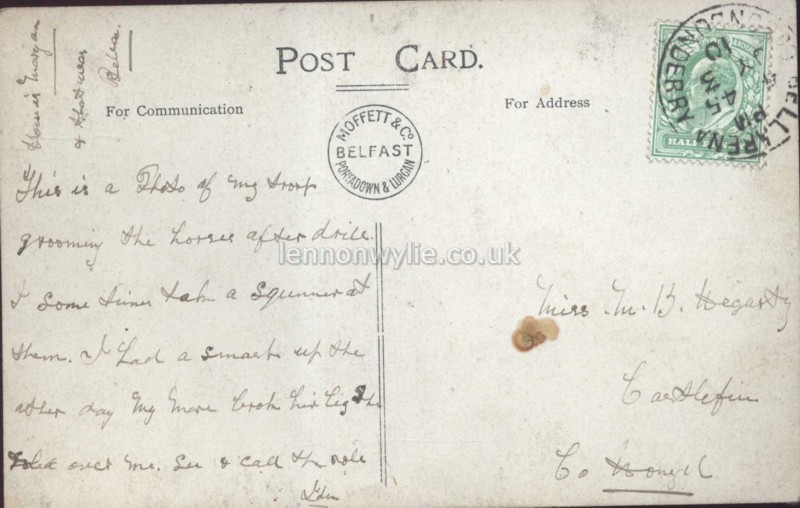 POST CARD.
For Communication
For Address
MOFFETT & Co
BELFAST
PORTADOWN & LURGAN
HALF
BELLARENA
LONDONDERRY
4 45 PM
10
This is a Photo of my troop
grooming the horses after drill.
I some times take a at
them. I had a smash up the
other day My Mare broke her leg & she
rolled over me. See & call the role
Miss. M. B. Hegarty
Castlefin
Co Donegal
lennonwylie.co.uk